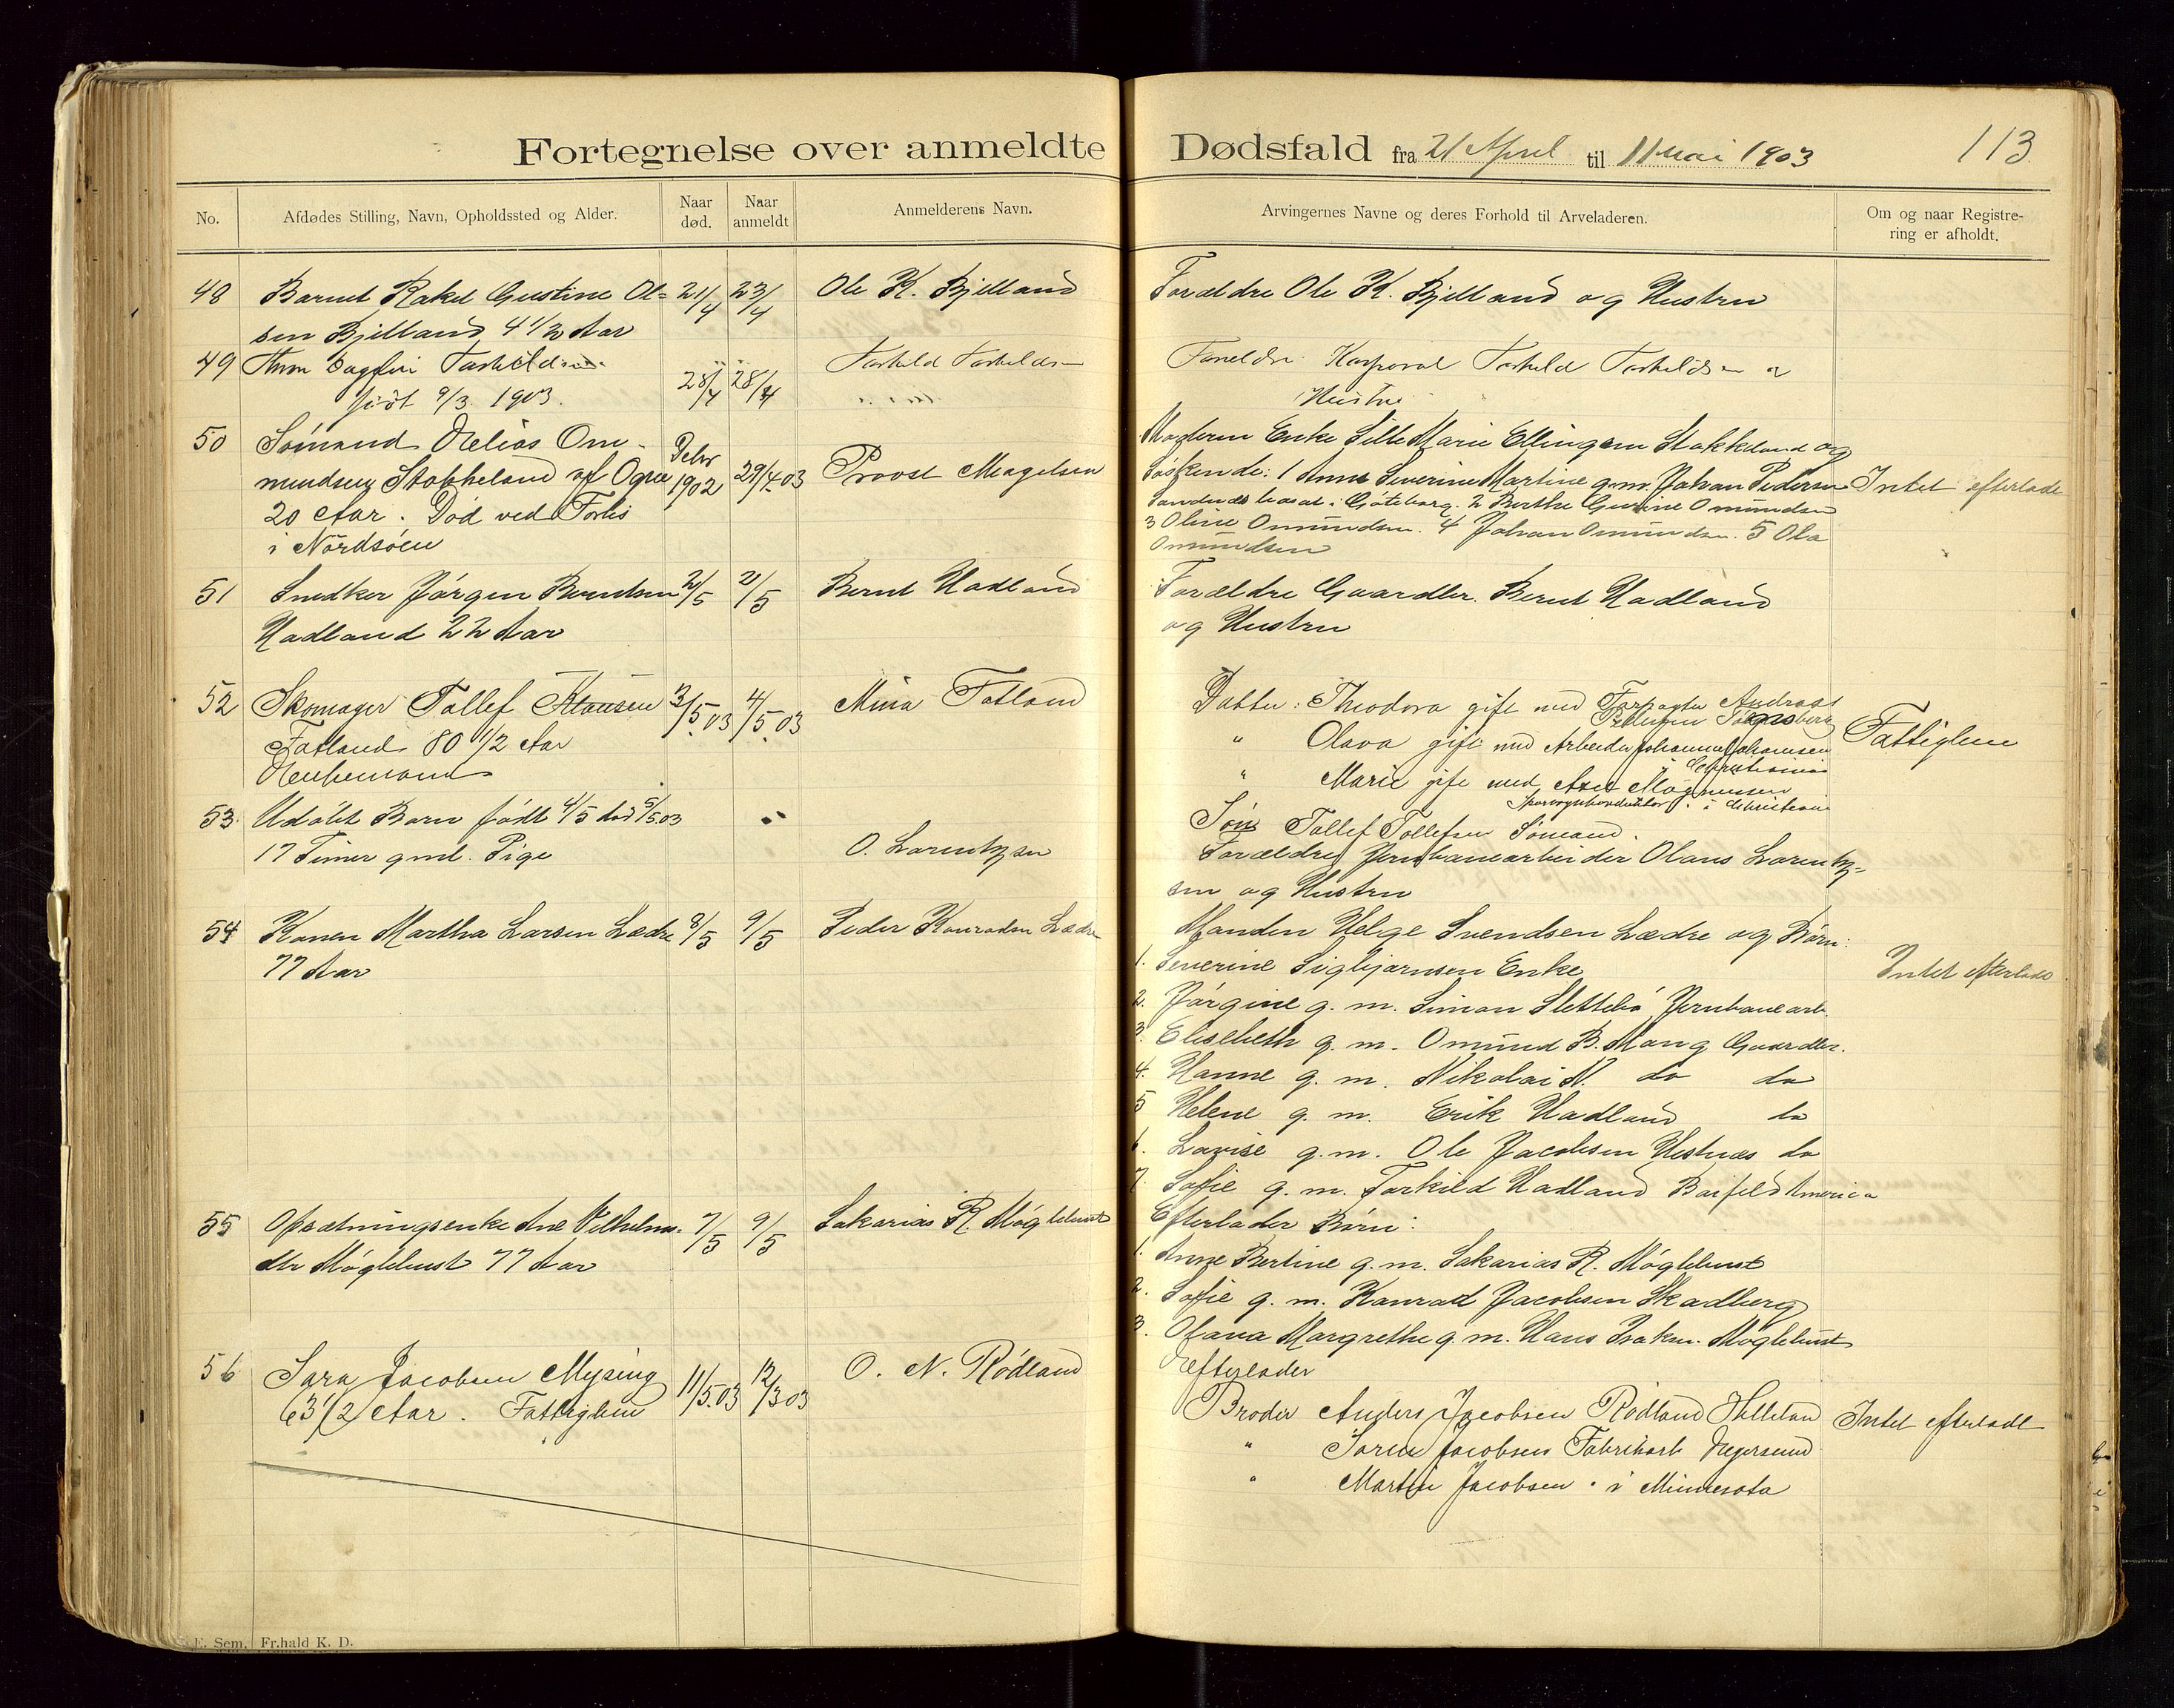 Fortegnelse over anmeldte Dødsfald fra 21 April til 11 Mai 1903
113
No.
Afdødes Stilling, Navn, Opholdssted og Alder.
Naar død.
Naar anmeldt
Anmelderens Navn.
Arvingernes Navne og deres Forhold til Arveladeren.
Om og naar Registrering er afholdt.
48 Barnet Rakel Gustine Ol= 21/4 23/4 Ole K. Bjelland Forældre Ole K. Bjelland og Hustru
sen Bjelland 4 1/2 Aar
49 Dagfin Torkildsen 28/4 28/4 Torkild Torkildsen Foreldre Korporal Torkild Torkildsen og
født 9/3 1903. Hustru
50 Sømand Elias Om- Debr 1902 29/4 03 Provst Magelsen Moderen Enke Sille Marie Ellingsen Stokkeland og
mundsen Stokkeland af Ogne Søskende: 1 Anne Severine Martine g.m. Johan Pedersen Intet efterladt
20 Aar. Død ved Forlis bosat i Gøteborg. 2 Berthe Gurine Omundsen
i Nordsøen 3 Oline Omundsen. 4 Johan Omundsen. 5 Ola
Omundsen
51 Snedker Jørgen Berntsen 2/5 2/5 Bernt Hadland Forældre Gaardbr. Bernt Hadland
Hadland 22 Aar og Hustru
52 Skomager Tollef Klausen 3/5.03 4/5.03 Mina Fatland Datter: Theodora gift med Forpagter Andreas
Fatland 80 1/2 Aar
" Olava gift med Arbeider Johannes Johannsen Fattiglem
i Christiania
Enkemand
" Marie gift med Axel Magnussen
Sporvognskonduktør i Christiania
Søn Tollef Tollefsen Sømand.
53 Udøbt Barn født 4/5 død 5/5.03 "
17 Timer gml. Pige O. Lorentzen Forældre Jernbanearbeider Olaus Lorentz=
en og Hustru
54 Konen Martha Larsen Lædre 8/5 9/5 Peder Konradsen Lædre Manden Helge Svendsen Lædre og Børn:
77 Aar
1. Severine Sigbjørnsen Enke Intet efterladt
2. Jørgine g. m. Simon Slettebø, Jernbanearb.
3. Elisebeth g. m. Omund B. Mong Gaardbr.
4. Hanne g. m. Nikolai N. do do
5 Helene g. m. Erik Hadland do
6. Lovise g. m. Ole Jacobsen Hestnæs do
7. Sofie g. m. Torkild Hadland America
55 Opsætningsenke Ane Vilhelms- 7/5 9/5 Sakarias R. Møglebust Efterlader Børn:
dtr Møglebust 77 Aar
1. Anne Bertine g. m. Sakarias R. Møglebust
2. Sofie g. m. Konrad Jacobsen Skadberg
3. Olava Margrethe g. m. Hans Isaksen Møglebust
56 Sara Jacobsen Mysing 11/5.03 12/3 03 O. N. Rødland Efterlader
63 1/2 Aar. Fattiglem
Broder Anders Jacobsen Rødland Helleland Intet efterladt
" Søren Jacobsen Fabrikarb Egersund
" Martin Jacobsen i Minnesota
E. Sem, Fr.hald K. D.